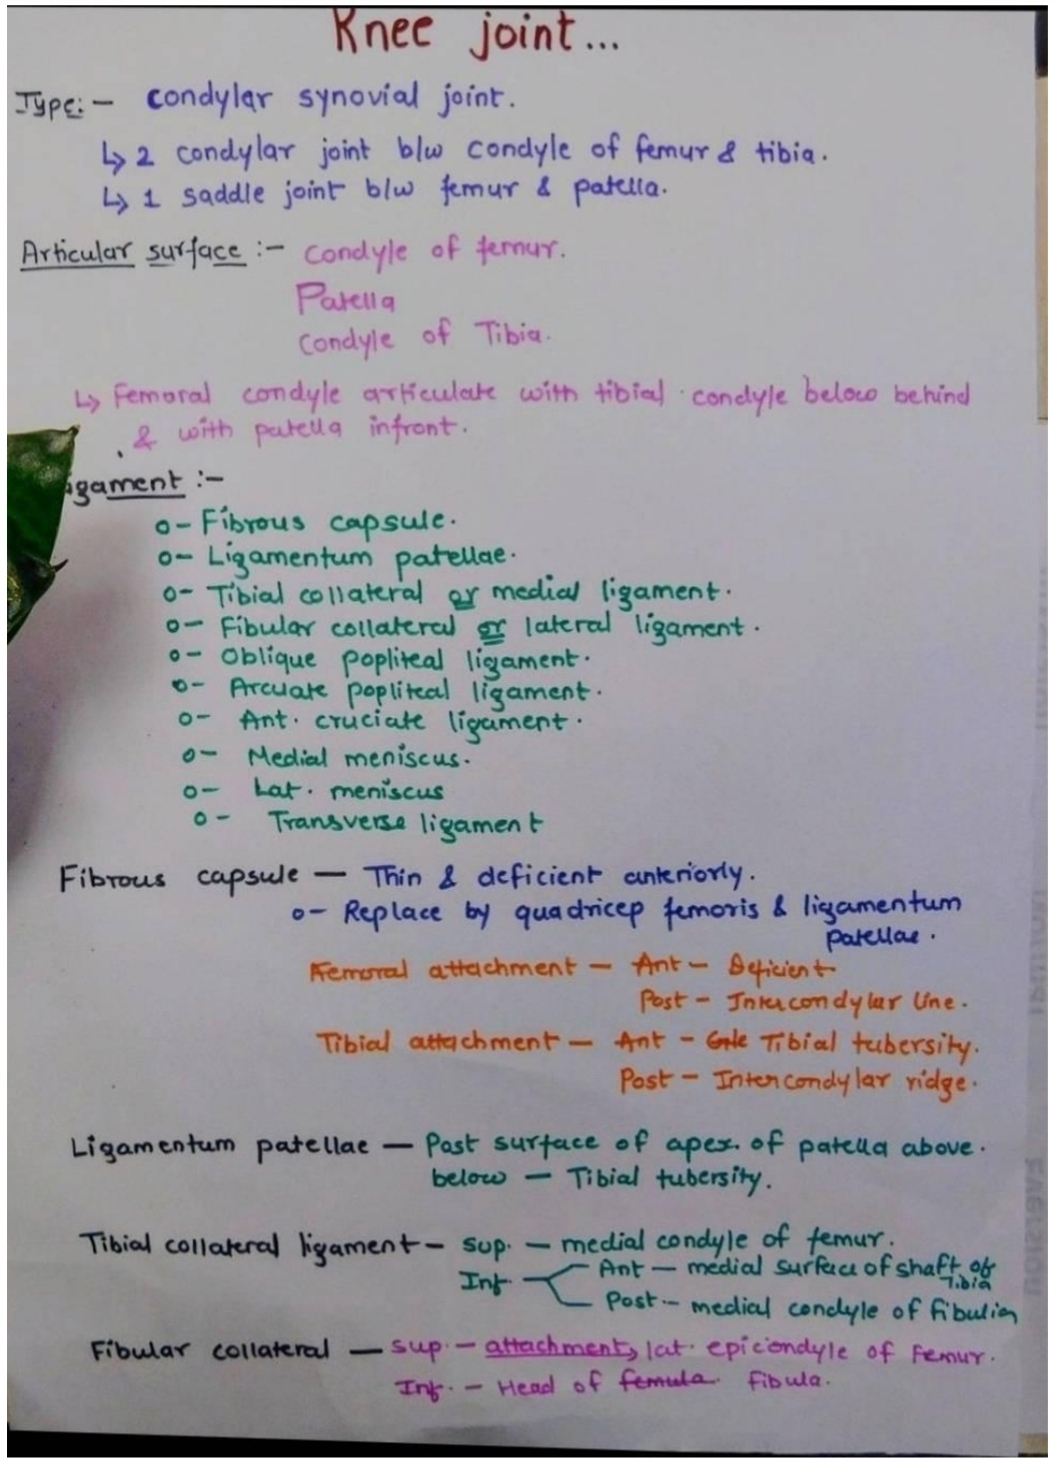 Knee joint...
Type:- condylar synovial joint.
↳ 2 condylar joint b/w condyle of femur & tibia.
↳ 1 saddle joint b/w femur & patella.
Articular surface :- condyle of femur.
Patella
condyle of Tibia.
↳ Femoral condyle articulate with tibial condyle below behind
& with patella infront.
igament :-
o- Fibrous capsule.
o- Ligamentum patellae.
o- Tibial collateral or medial ligament.
o- Fibular collateral or lateral ligament.
o- Oblique popliteal ligament.
o- Arcuate popliteal ligament.
o- Ant. cruciate ligament.
o- Medial meniscus.
o- Lat. meniscus
o- Transverse ligament
Fibrous capsule — Thin & deficient anteriorly.
o- Replace by quadricep femoris & ligamentum
patellae.
Femoral attachment — Ant — Deficient
Post - Intercondylar line.
Tibial attachment — Ant - Tibial tubersity.
Post - Intercondylar ridge.
Ligamentum patellae — Post surface of apex. of patella above.
below — Tibial tubersity.
Tibial collateral ligament - sup. — medial condyle of femur.
Inf. Ant — medial surface of shaft of
Tibia
Post - medial condyle of fibulia
Fibular collateral — sup. - attachment, lat. epicondyle of femur.
Inf. - Head of femula. fibula.